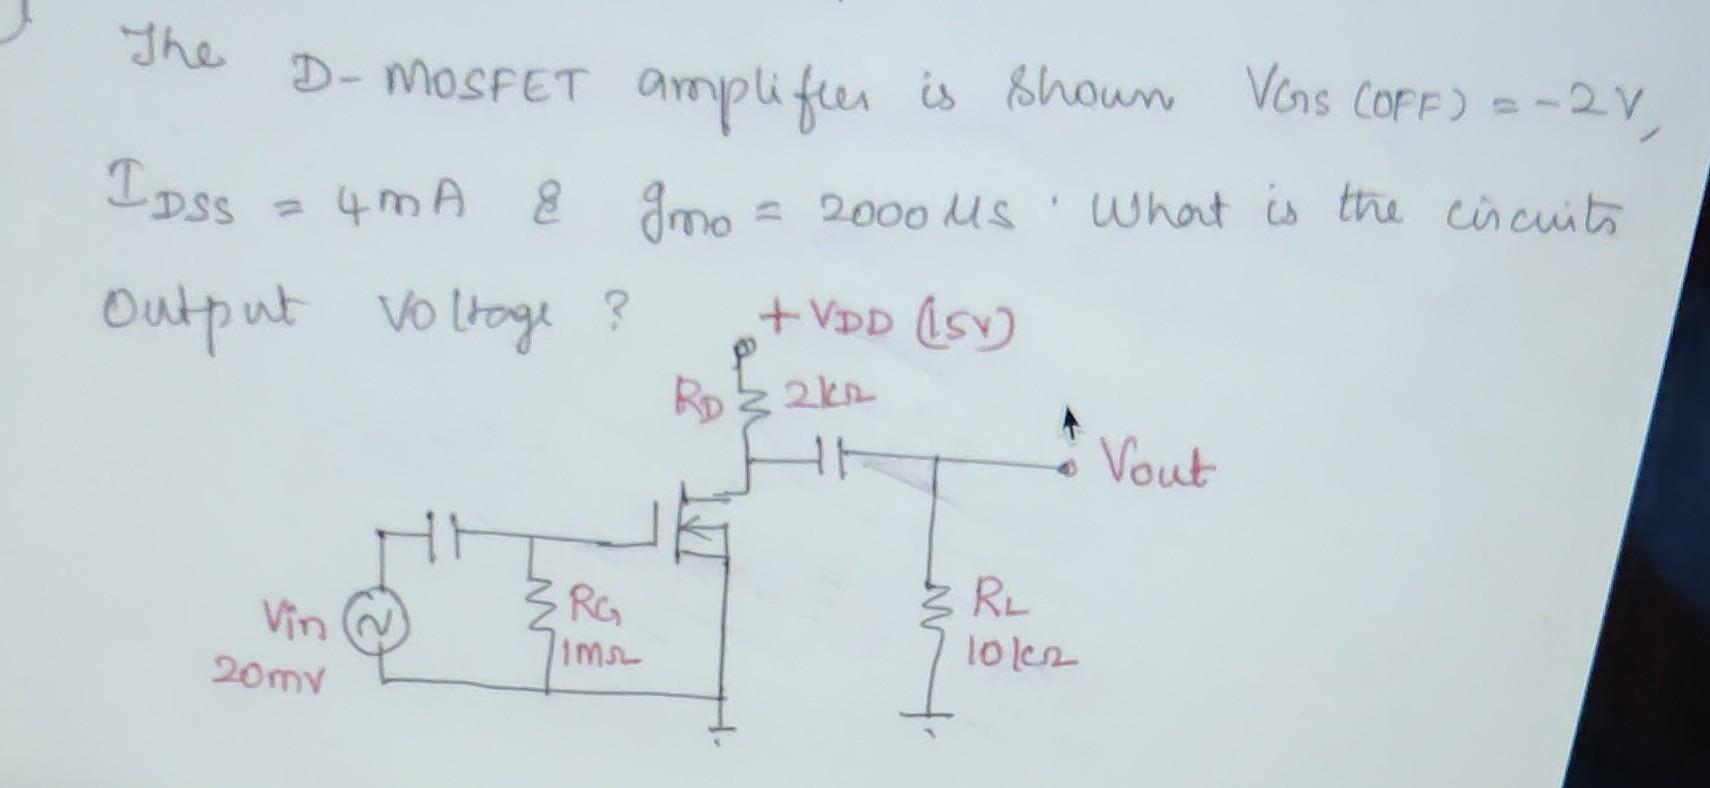 The D-MOSFET amplifier is shown VGS (OFF) = -2V,
IDSS = 4mA & gmo = 2000 µs. What is the circuits
output voltage ?
+ VDD (15V)
RD 2kΩ
Vout
Vin
20mV
RG
1MΩ
RL
10kΩ